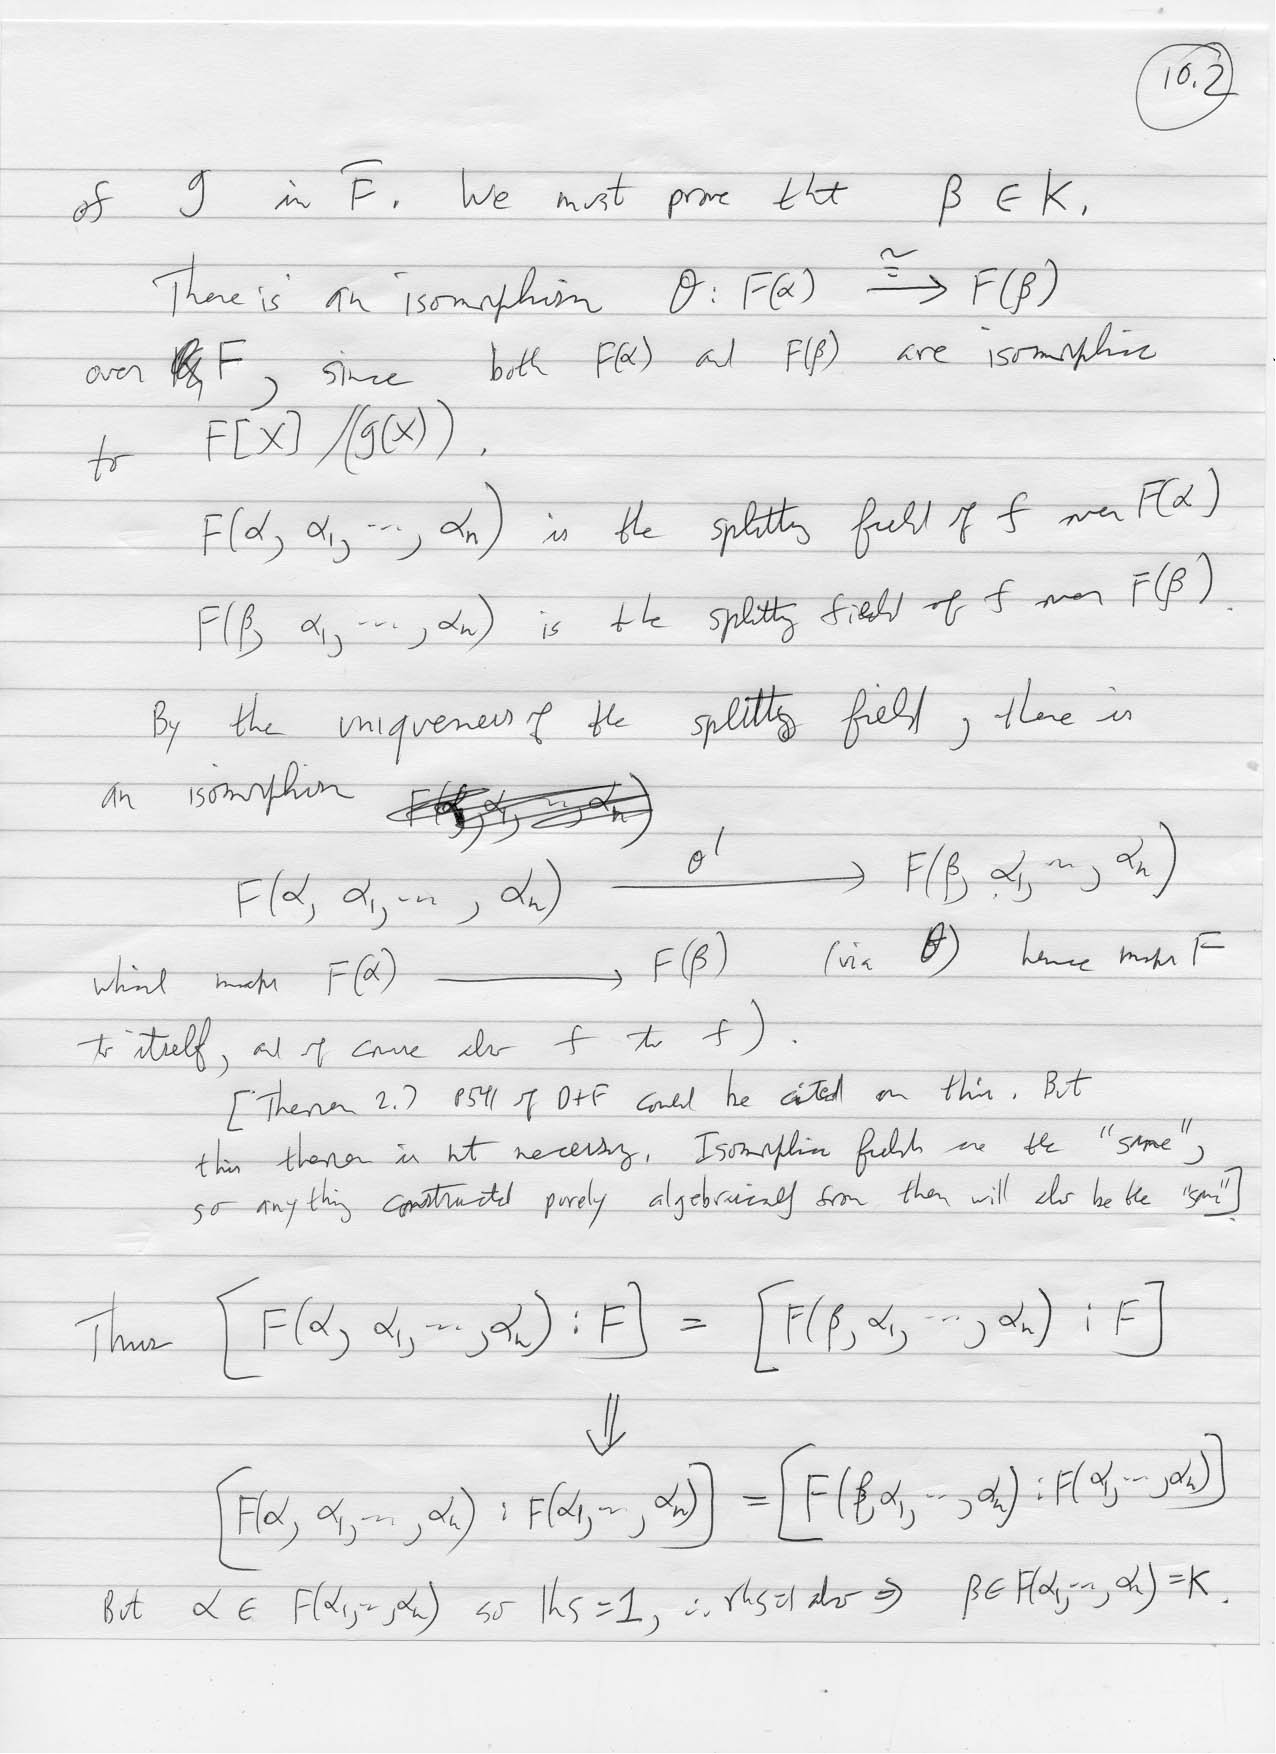 10.2
of g in F̅. We must prove tht β ∈ K.
There is an isomorphism θ: F(α) ≅⟶ F(β)
over F, since both F(α) and F(β) are isomorphic
to F[X]/(g(X)).
F(α, α₁, ..., αₙ) is the splitting field of f over F(α)
F(β, α₁, ..., αₙ) is the splitting field of f over F(β).
By the uniqueness of the splitting field, there is
an isomorphism
F(α, α₁, ..., αₙ) —θ'⟶ F(β, α₁, ..., αₙ)
which maps F(α) ⟶ F(β) (via θ) hence maps F
to itself, and of course also f to f).
[Theorem 2.7 p541 of D+F could be cited on this. But
this theorem is not necessary. Isomorphic fields are the "same",
so anything constructed purely algebraically from them will also be the "same"]
Thus [F(α, α₁, ..., αₙ) : F] = [F(β, α₁, ..., αₙ) : F]
⇓
[F(α, α₁, ..., αₙ) : F(α₁, ..., αₙ)] = [F(β, α₁, ..., αₙ) : F(α₁, ..., αₙ)]
But α ∈ F(α₁, ..., αₙ) so lhs = 1, ∴ rhs = 1 also ⇒ β ∈ F(α₁, ..., αₙ) = K.